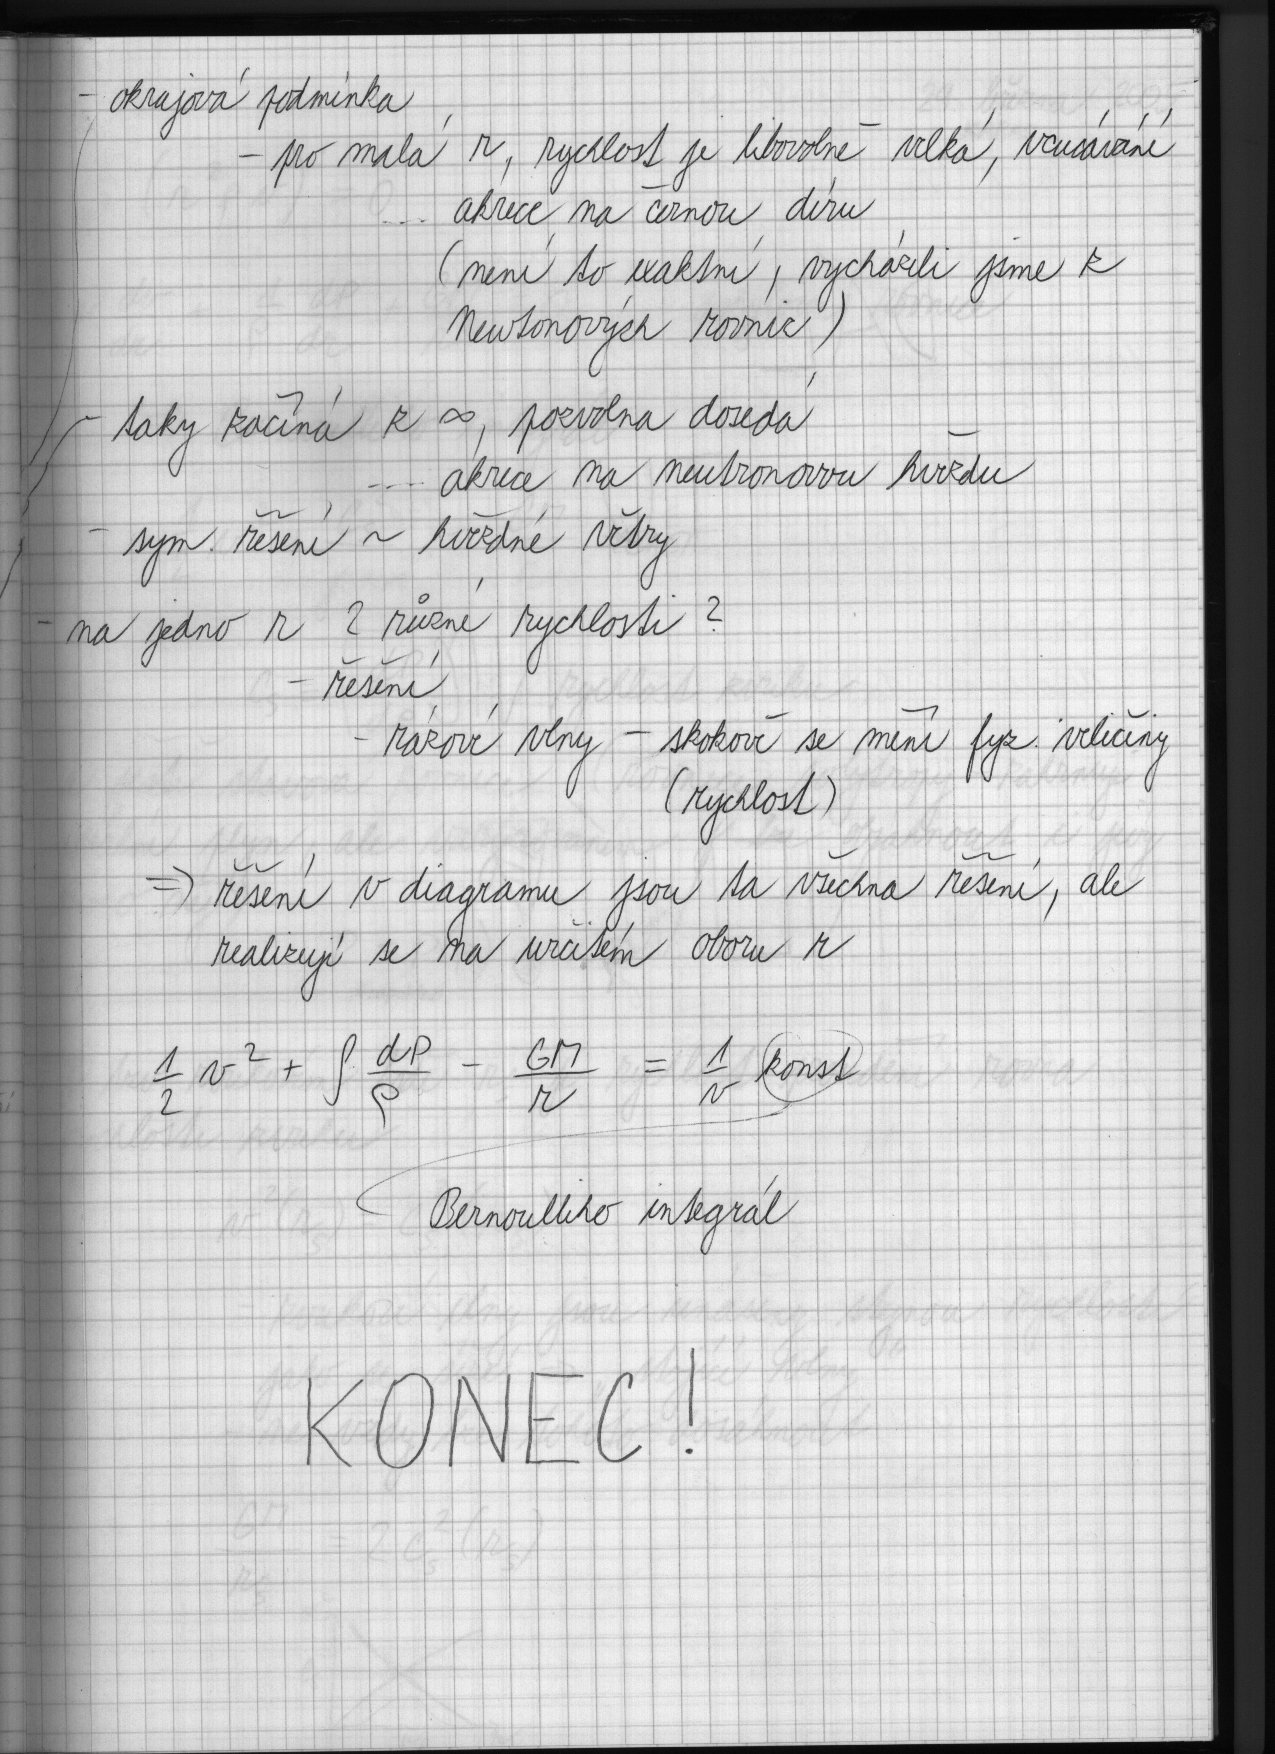 - okrajová podmínka
- pro malá r, rychlost je libovolně velká, vcucávání
.... akrece na černou díru
(není to exaktní, vycházeli jsme z
Newtonových rovnic)
- taky začíná z ∞, pozvolna dosedá
.... akrece na neutronovou hvězdu
- sym. řešení ~ hvězdné větry
- na jedno r 2 různé rychlosti?
- řešení
- rázové vlny - skokově se mění fyz. veličiny
(rychlost)
⇒ řešení v diagramu jsou ta všechna řešení, ale
realizují se na určitém oboru r
1/2 v² + ∫ dP/ρ - GM/r = 1/v konst
Bernoulliho integrál
KONEC!